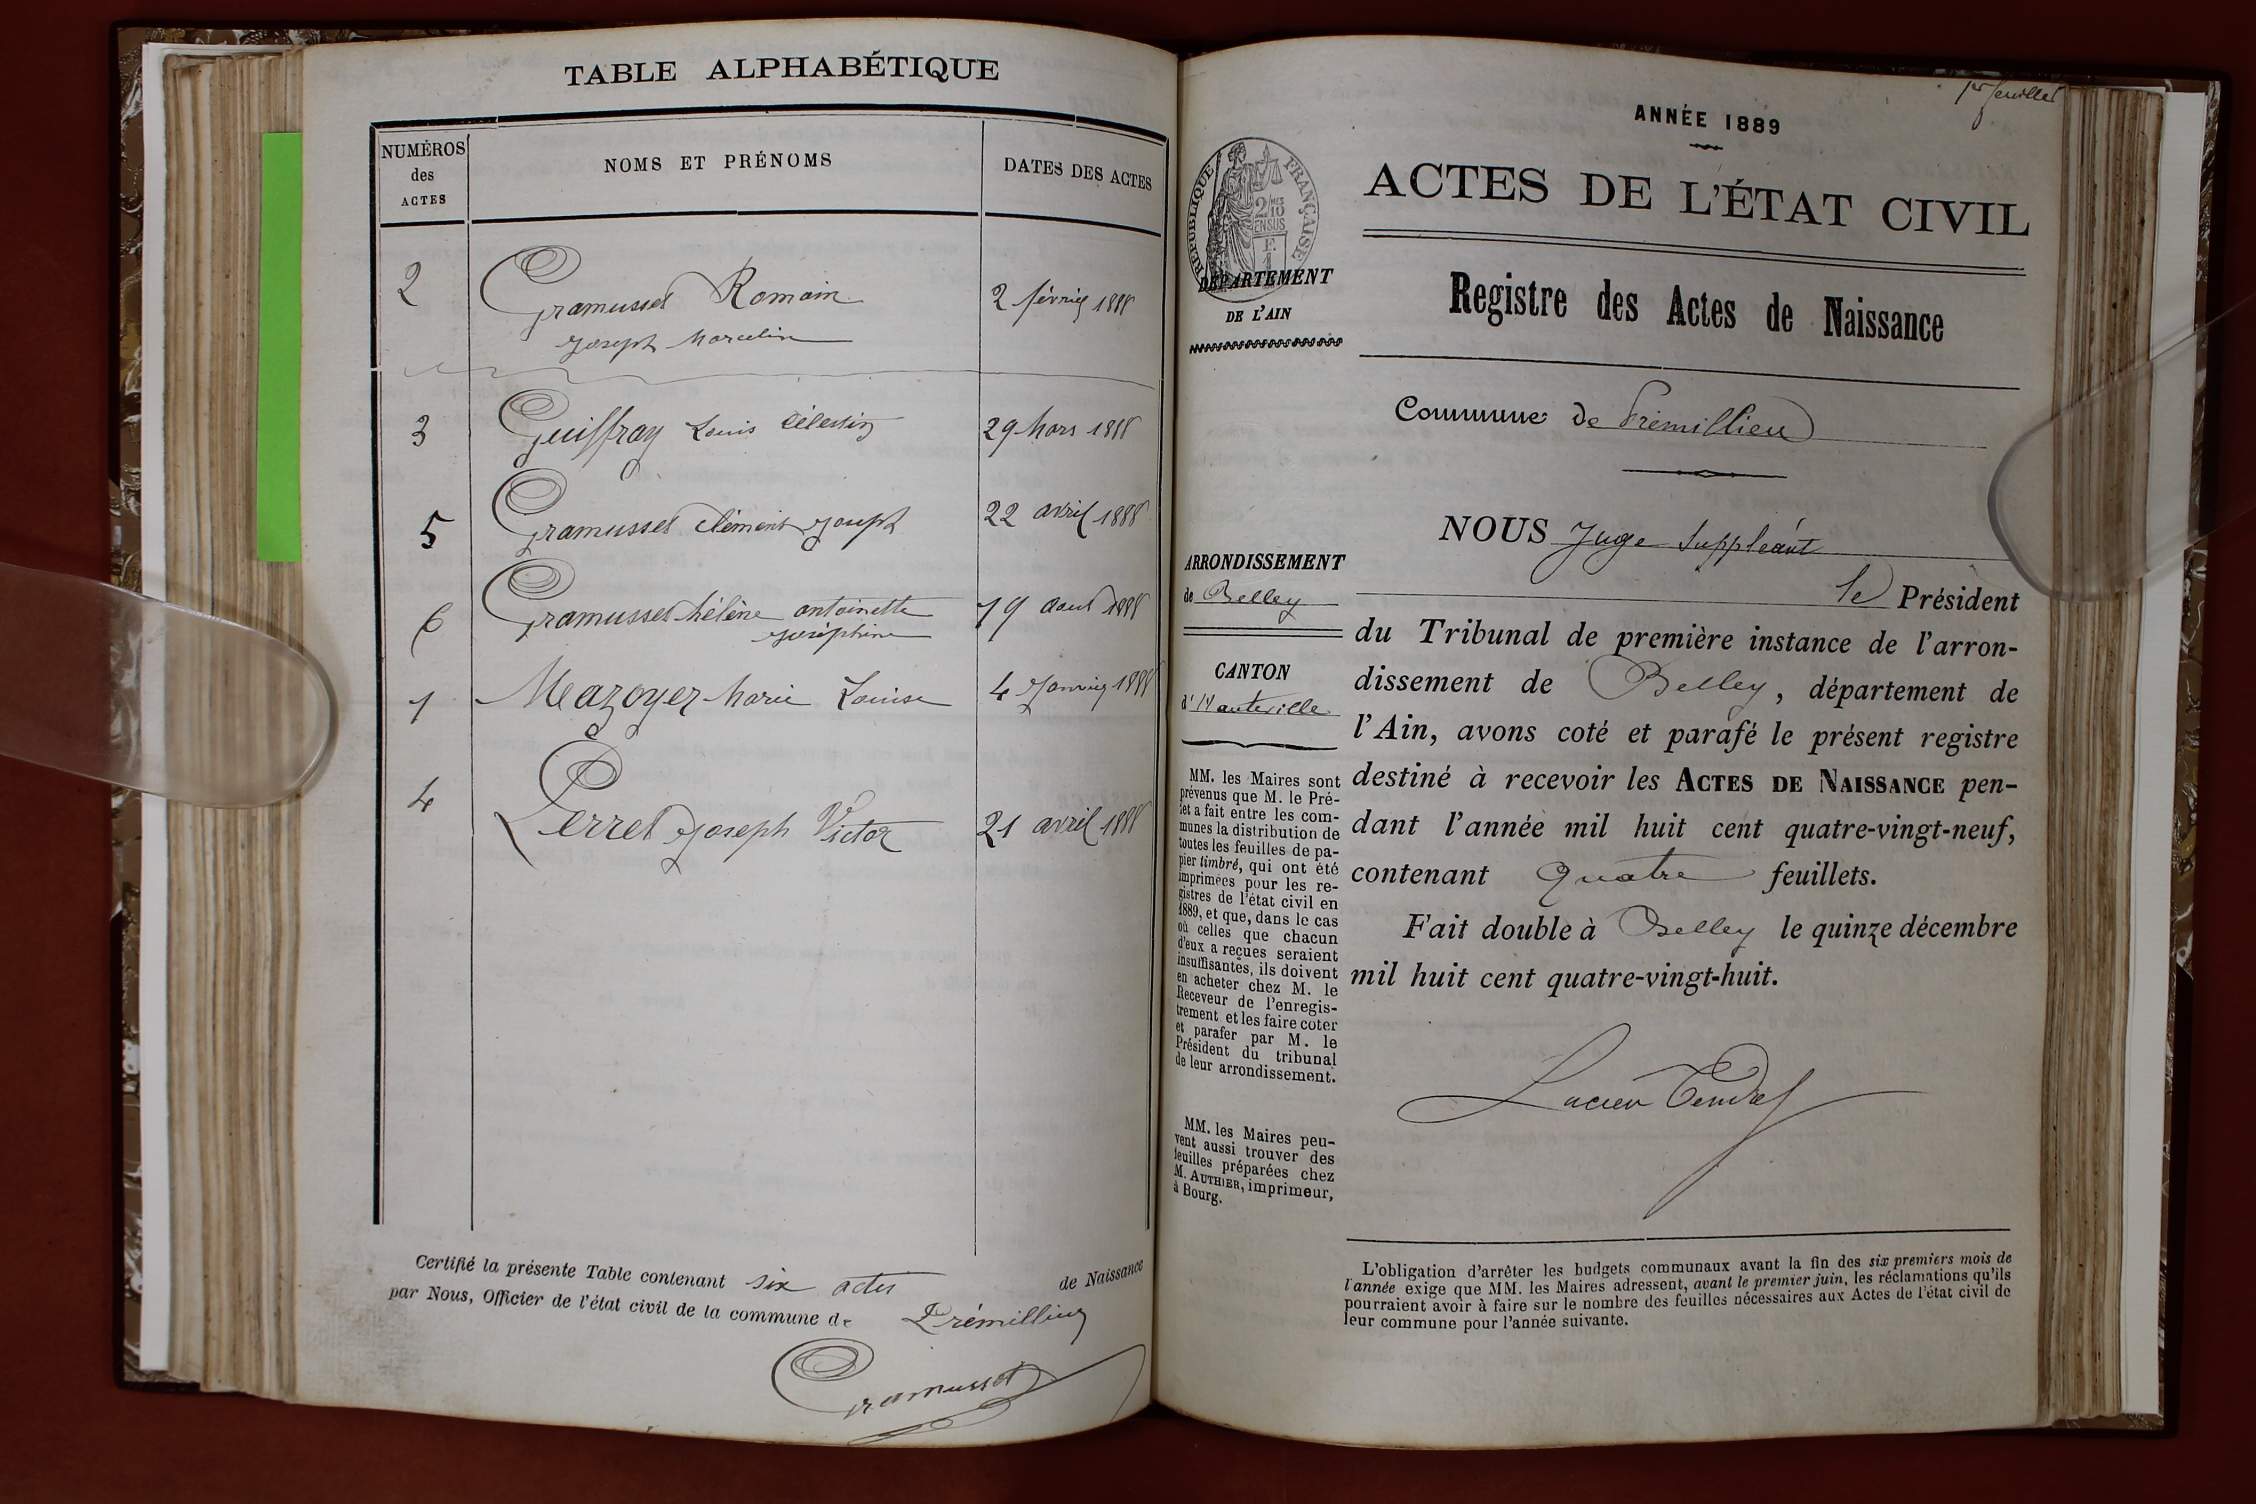 TABLE ALPHABÉTIQUE
NUMÉROS
des
ACTES
NOMS ET PRÉNOMS
DATES DES ACTES
2 Gramusset Romain 2 février 1888
Joseph Marcelin
3 Guiffray Louis Célestin 29 Mars 1888
5 Gramusset Clément Joseph 22 avril 1888
6 Gramusset hélène antoinette 19 aout 1888
Joséphine
1 Mazoyer Marie Louise 4 Janvier 1888
4 Perret Joseph Victor 21 avril 1888
Certifié la présente Table contenant six actes de Naissance
par Nous, Officier de l'état civil de la commune de Prémillieu
Gramusset
1er feuillet
ANNÉE 1889
ACTES DE L'ÉTAT CIVIL
RÉPUBLIQUE FRANÇAISE
2/10
EN SUS
F.
1
DÉPARTEMENT
DE L'AIN
Registre des Actes de Naissance
Commune de Prémillieu
ARRONDISSEMENT
de Belley
CANTON
d'Hauteville
MM. les Maires sont
prévenus que M. le Pré-
fet a fait entre les com-
munes la distribution de
toutes les feuilles de pa-
pier timbré, qui ont été
imprimées pour les re-
gistres de l'état civil en
1889, et que, dans le cas
où celles que chacun
d'eux a reçues seraient
insuffisantes, ils doivent
en acheter chez M. le
Receveur de l'enregis-
trement et les faire coter
et parafer par M. le
Président du tribunal
de leur arrondissement.
MM. les Maires peu-
vent aussi trouver des
feuilles préparées chez
M. AUTHIER, imprimeur,
à Bourg.
NOUS Juge Suppléant
le Président
du Tribunal de première instance de l'arron-
dissement de Belley, département de
l'Ain, avons coté et parafé le présent registre
destiné à recevoir les ACTES DE NAISSANCE pen-
dant l'année mil huit cent quatre-vingt-neuf,
contenant Quatre feuillets.
Fait double à Belley le quinze décembre
mil huit cent quatre-vingt-huit.
Lucien Tendret
L'obligation d'arrêter les budgets communaux avant la fin des six premiers mois de
l'année exige que MM. les Maires adressent, avant le premier juin, les réclamations qu'ils
pourraient avoir à faire sur le nombre des feuilles nécessaires aux Actes de l'état civil de
leur commune pour l'année suivante.